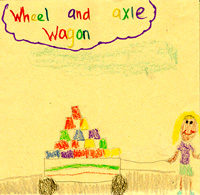 Wheel and axle
Wagon